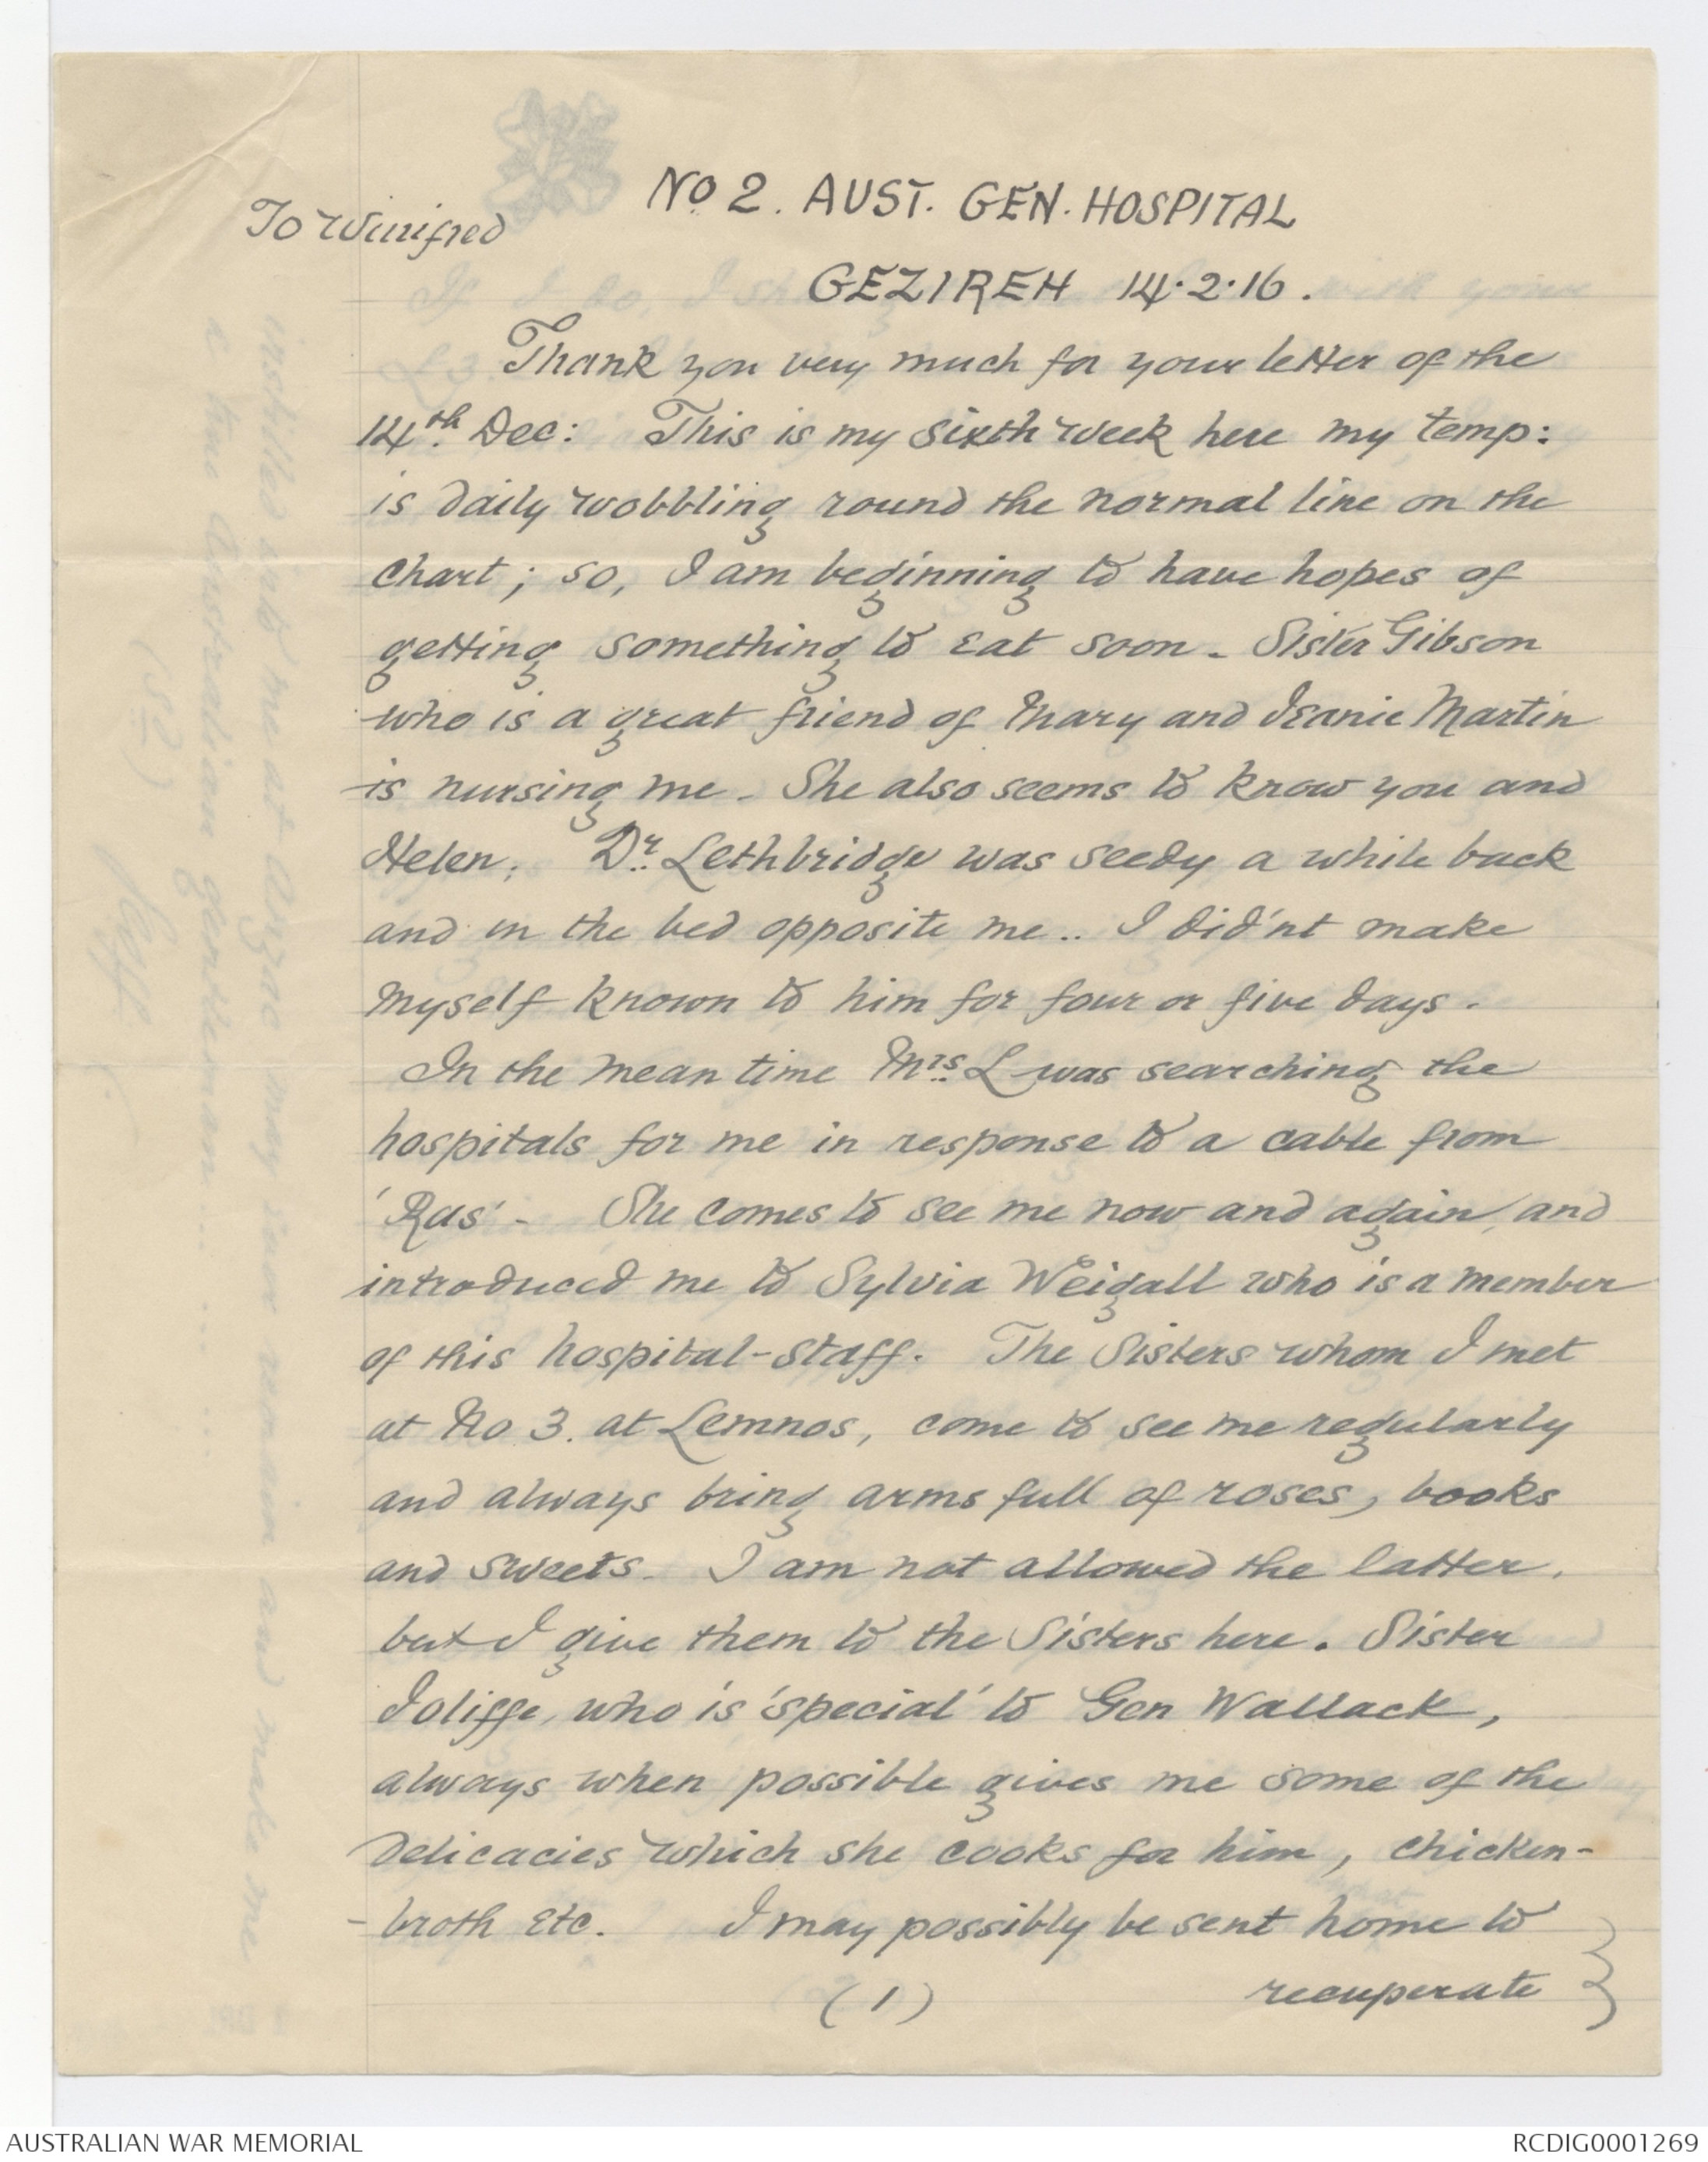 No 2. AUST. GEN. HOSPITAL
To Winifred
GEZIREH 14.2.16.
Thank you very much for your letter of the
14th. Dec: This is my sixth week here my temp:
is daily wobbling round the normal line on the
chart; so, I am beginning to have hopes of
getting something to eat soon. Sister Gibson
who is a great friend of Mary and Jeanie Martin
is nursing me. She also seems to know you and
Helen. Dr. Lethbridge was seedy a while back
and in the bed opposite me.. I did'nt make
myself known to him for four or five days.
In the mean time Mrs. L was searching the
hospitals for me in response to a cable from
'Ras'. She comes to see me now and again, and
introduced me to Sylvia Weigall who is a member
of this hospital-staff. The Sisters whom I met
at No 3. at Lemnos, come to see me regularly
and always bring arms full of roses, books
and sweets. I am not allowed the latter,
but I give them to the Sisters here. Sister
Joliffe, who is 'special' to Gen Wallack,
always when possible gives me some of the
delicacies which she cooks for him, chicken-
-broth etc. I may possibly be sent home to
(1) recuperate }
AUSTRALIAN WAR MEMORIAL
RCDIG0001269